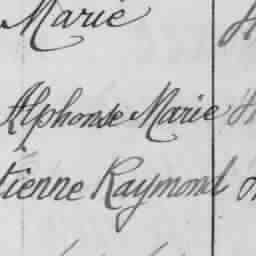 Marie
Alphonse Marie
tienne Raymond